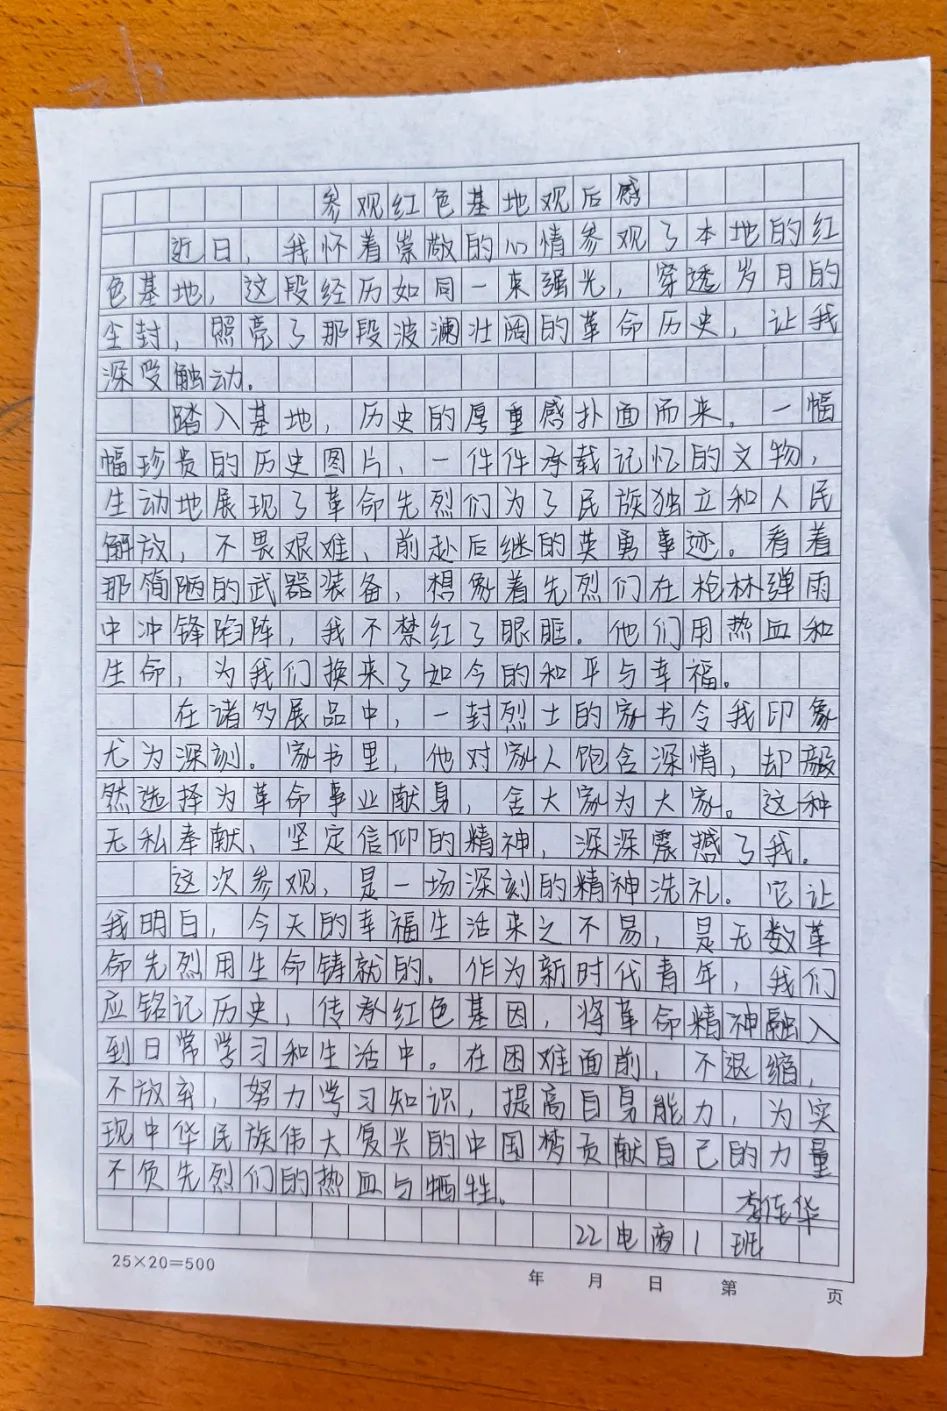 参观红色基地观后感
近日，我怀着崇敬的心情参观了本地的红
色基地，这段经历如同一束强光，穿透岁月的
尘封，照亮了那段波澜壮阔的革命历史，让我
深受触动。
踏入基地，历史的厚重感扑面而来。一幅
幅珍贵的历史图片、一件件承载记忆的文物，
生动地展现了革命先烈们为了民族独立和人民
解放，不畏艰难、前赴后继的英勇事迹。看着
那简陋的武器装备，想象着先烈们在枪林弹雨
中冲锋陷阵，我不禁红了眼眶。他们用热血和
生命，为我们换来了如今的和平与幸福。
在诸多展品中，一封烈士的家书令我印象
尤为深刻。家书里，他对家人饱含深情，却毅
然选择为革命事业献身，舍大家为大家。这种
无私奉献、坚定信仰的精神，深深震撼了我。
这次参观，是一场深刻的精神洗礼。它让
我明白，今天的幸福生活来之不易，是无数革
命先烈用生命铸就的。作为新时代青年，我们
应铭记历史，传承红色基因，将革命精神融入
到日常学习和生活中。在困难面前，不退缩，
不放弃，努力学习知识，提高自身能力，为实
现中华民族伟大复兴的中国梦贡献自己的力量
不负先烈们的热血与牺牲。
华
22电商1班
25×20=500
年 月 日 第 页